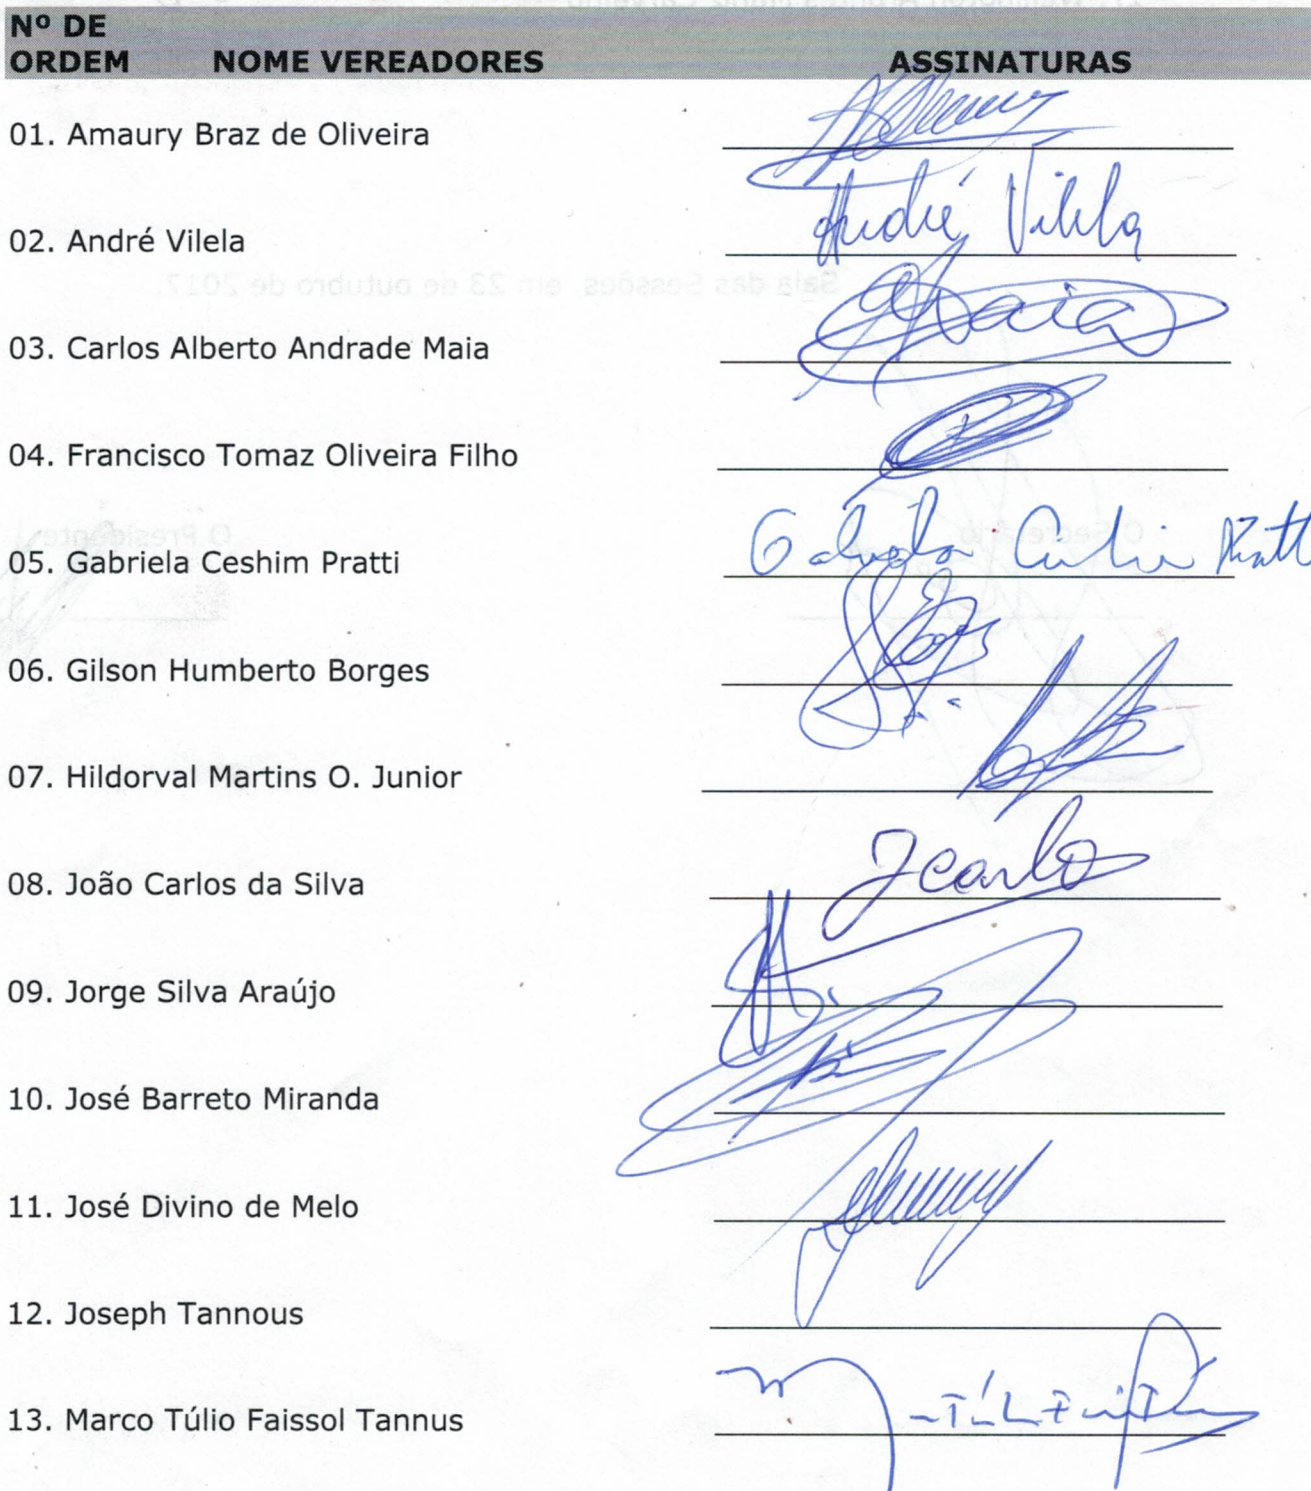 Nº DE
ORDEM NOME VEREADORES ASSINATURAS
01. Amaury Braz de Oliveira
02. André Vilela André Vilela
03. Carlos Alberto Andrade Maia Maia
04. Francisco Tomaz Oliveira Filho
05. Gabriela Ceshim Pratti
06. Gilson Humberto Borges
07. Hildorval Martins O. Junior
08. João Carlos da Silva Jcarlos
09. Jorge Silva Araújo
10. José Barreto Miranda
11. José Divino de Melo
12. Joseph Tannous
13. Marco Túlio Faissol Tannus
Sala das Sessões, em 23 de outubro de 2017.
O Secretário O Presidente